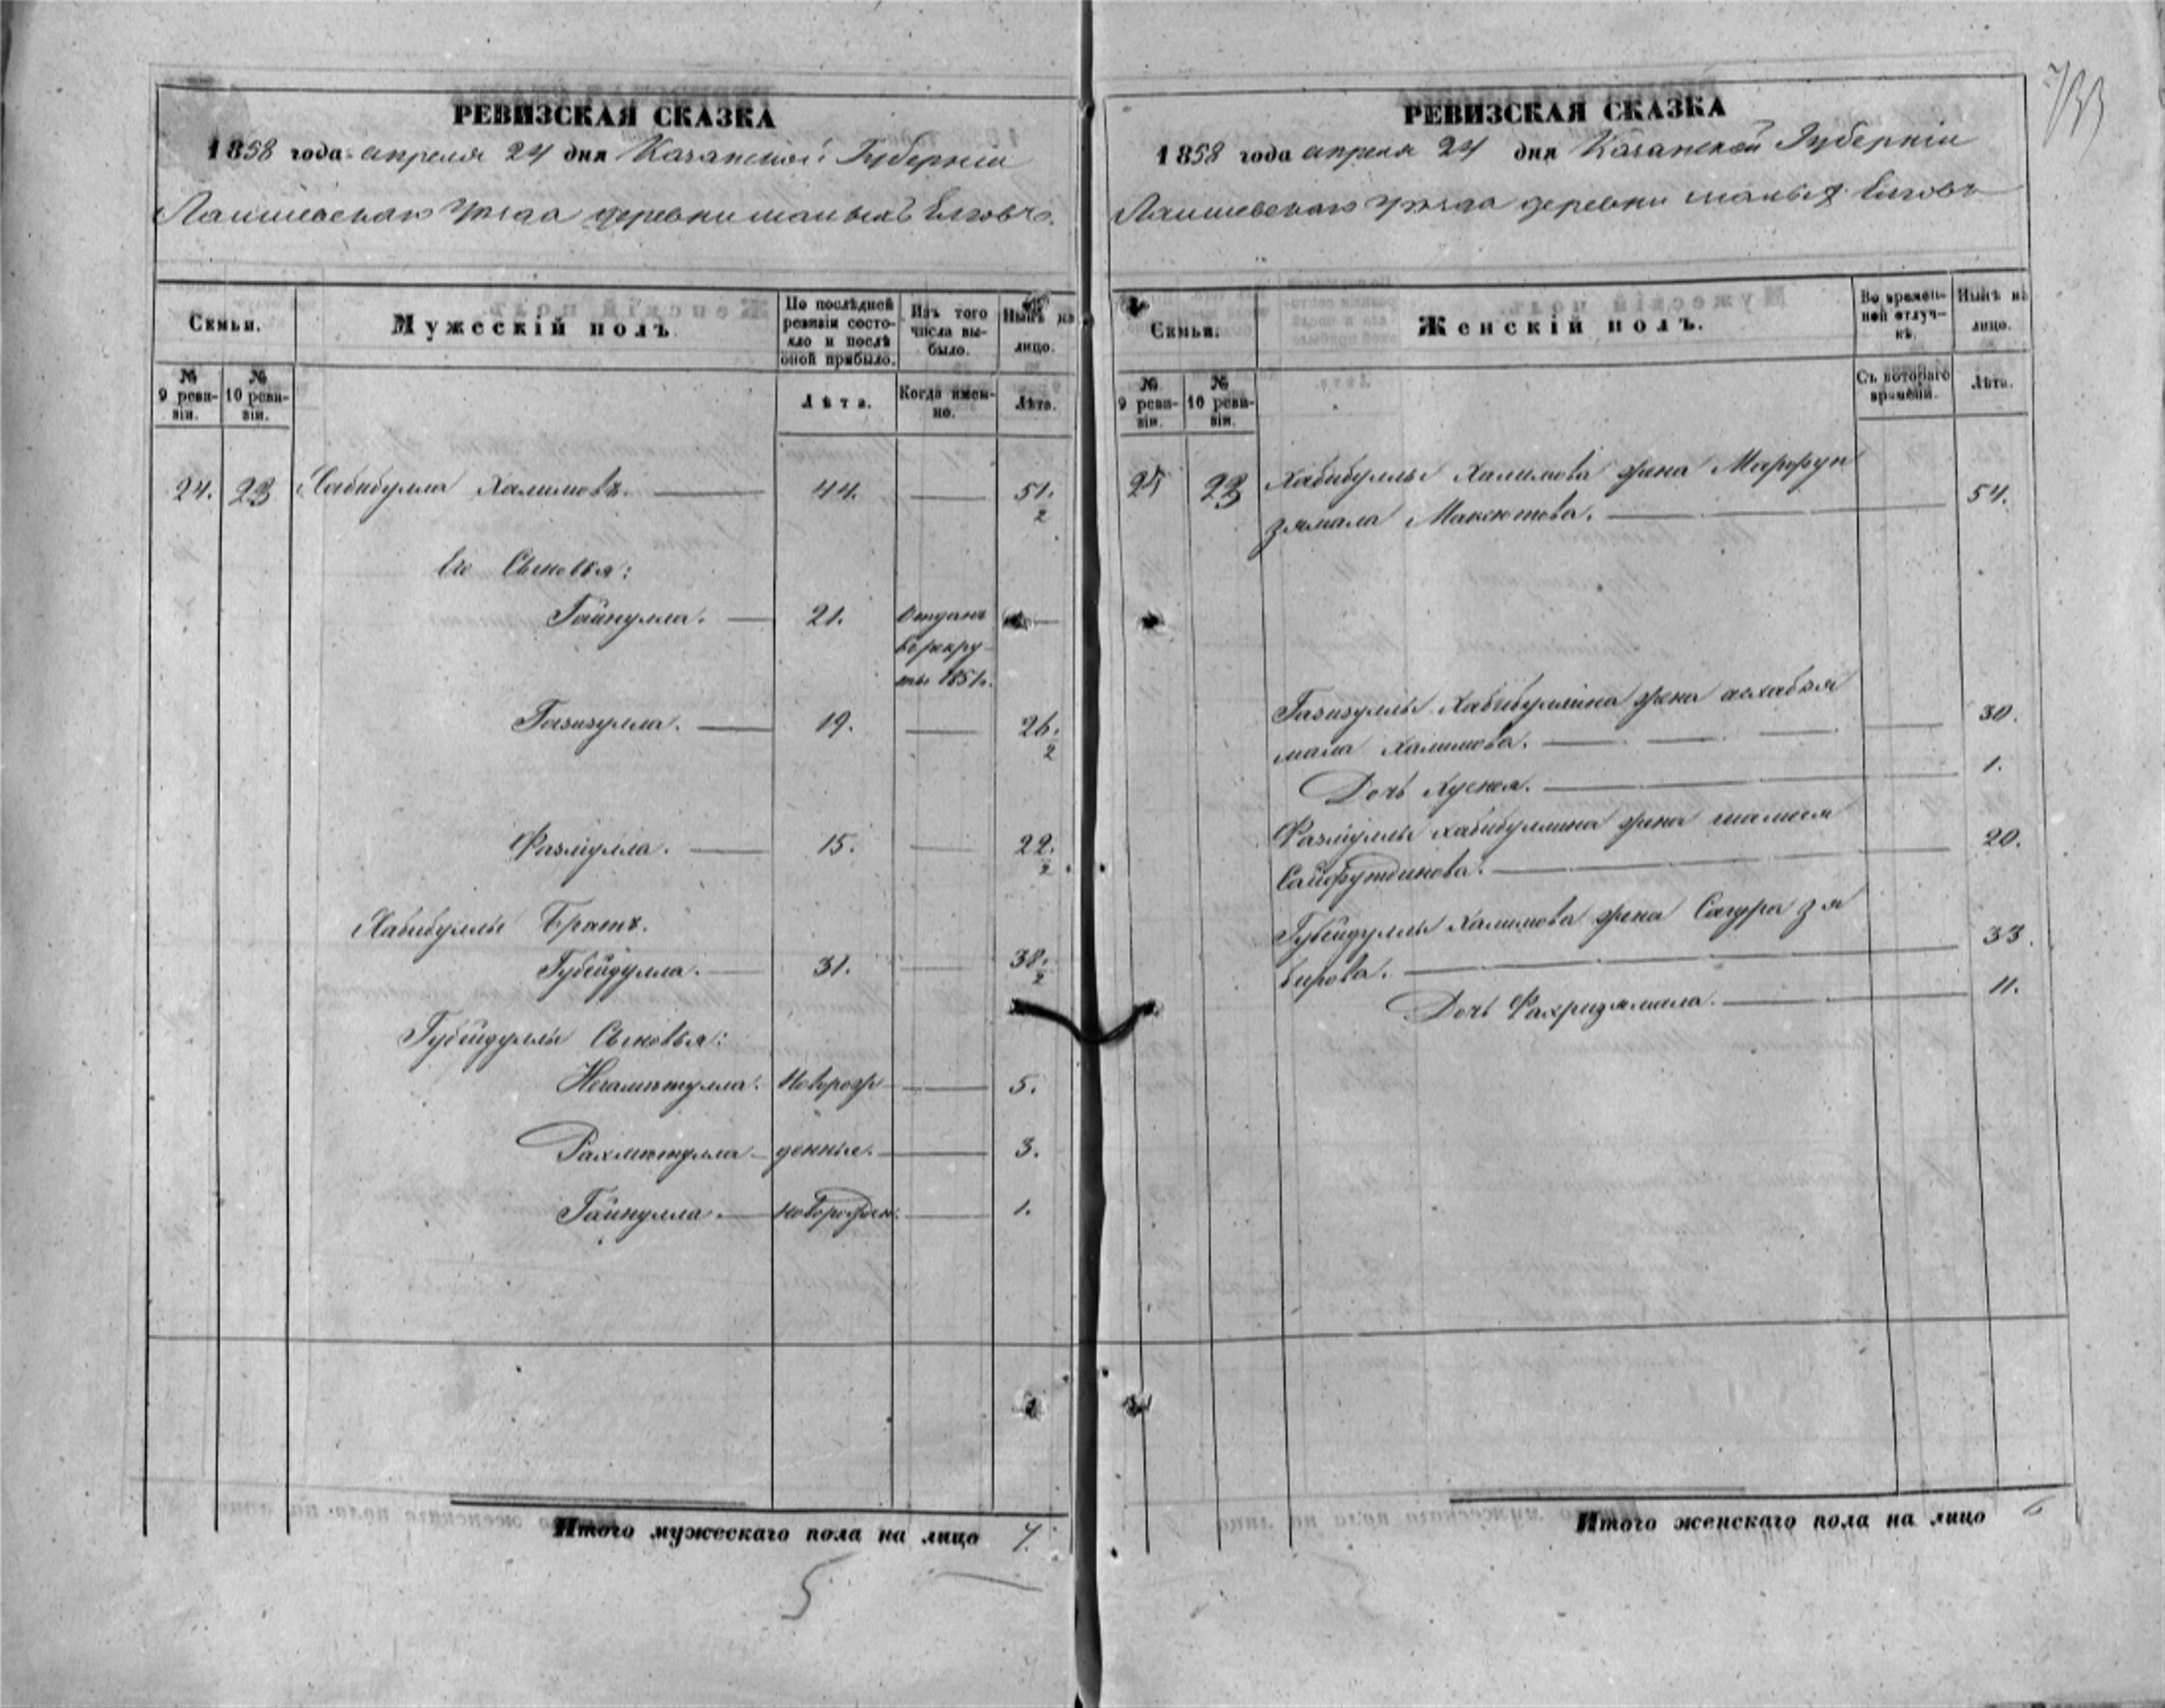 РЕВИЗСКАЯ СКАЗКА
1858 года апреля 24 дня Казанской Губерніи
Лаишевскаго Уѣзда деревни малыхъ Елговъ
Семьи.
Мужескій полъ.
По послѣдней ревизіи состояло и послѣ оной прибыло.
Изъ того числа выбыло.
Нынѣ на лицо.
№ 9 ревизіи.
№ 10 ревизіи.
Лѣта.
Когда именно.
Лѣта.
24. 23 Хабибулла Халимовъ. 44. 51. 2
Его Сыновья:
Гайнулла. 21. Отданъ
в рекру-
ты 1851.
Газизулла. 19. 26. 2
Фазлулла. 15. 22. 2
Хабибуллы Братъ.
Губейдулла. 31. 38. 2
Губейдуллы Сыновья:
Негаметулла. новорож 5.
Рахметулла денные. 3.
Гайнулла. новорожден. 1.
Итого мужескаго пола на лицо 7.
5
РЕВИЗСКАЯ СКАЗКА
1858 года апреля 24 дня Казанской Губерніи
Лаишевскаго Уѣзда деревни малыхъ Елговъ
Семьи.
Женскій полъ.
Во временной отлучкѣ.
Нынѣ на лицо.
№ 9 ревизіи.
№ 10 ревизіи.
Съ котораго времени.
Лѣта.
23 Хабибуллы Халимова жена Марфуи
зямала Максютова. 54.
Газизуллы Хабибуллина жена асхабзя
мала Халимова. 30.
Дочь Хусня. 1.
Фазлуллы Хабибуллина жена
Сайфутдинова. 20.
Губейдуллы Халимова жена Сагура зя
бирова. 33.
Дочь Фахризямала. 11.
Итого женскаго пола на лицо 6